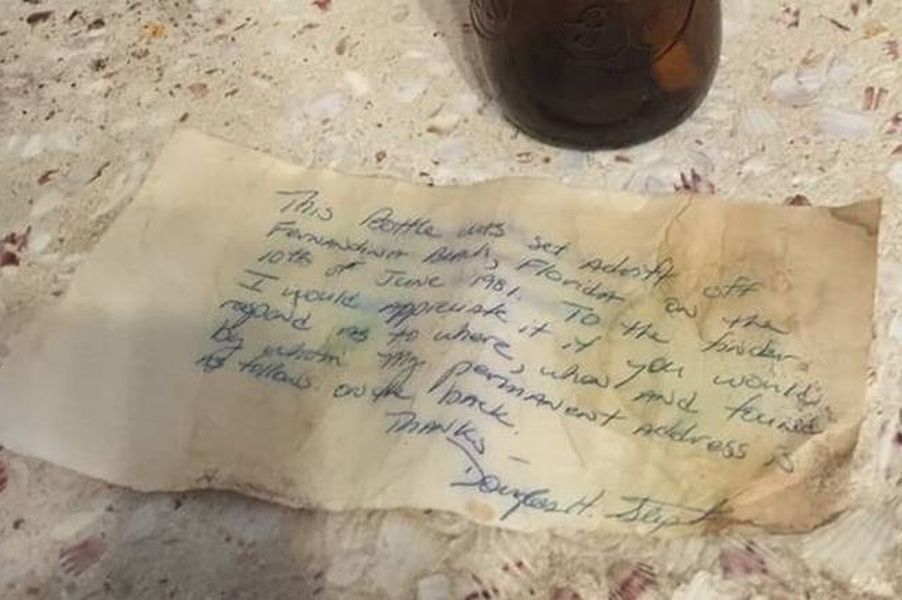 This Bottle was set Adrift off
Fernandina Beach, Florida on the
10th of June 1981. To the finder,
I would appriciate it if you would
respond as to where, when and found
by whom My permanent address is
as follows on the back.
Thanks –
Douglas H.